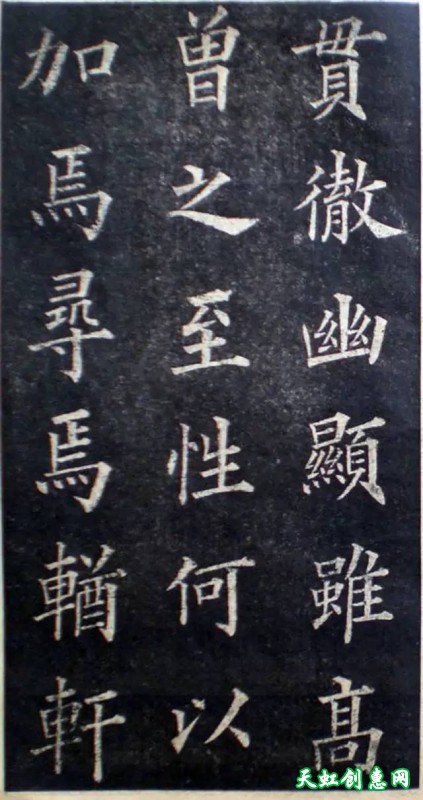 貫徹幽顯雖高
曾之至性何以
加焉尋焉輶軒
天虹创惠网